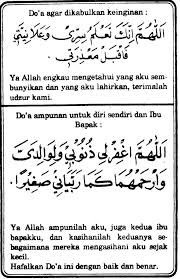 Do'a agar dikabulkan keinginan :
اَللّٰهُمَّ اِنَّكَ تَعْلَمُ سِرِّيْ وَعَلَانِيَتِيْ
فَاقْبَلْ مَعْذِرَتِيْ.
Ya Allah engkau mengetahui yang aku sem-
bunyikan dan yang aku lahirkan, terimalah
udzur kami.
Do'a ampunan untuk diri sendiri dan Ibu
Bapak :
اَللّٰهُمَّ اغْفِرْلِيْ ذُنُوْبِيْ وَلِوَالِدَيَّ
وَارْحَمْهُمَا كَمَا رَبَّيَانِيْ صَغِيْرًا.
Ya Allah ampunilah aku, juga kedua ibu
bapakku, dan kasihanilah keduanya se-
bagaimana mereka mengasihani aku sejak
kecil.
Hafalkan Do'a ini dengan baik dan benar.